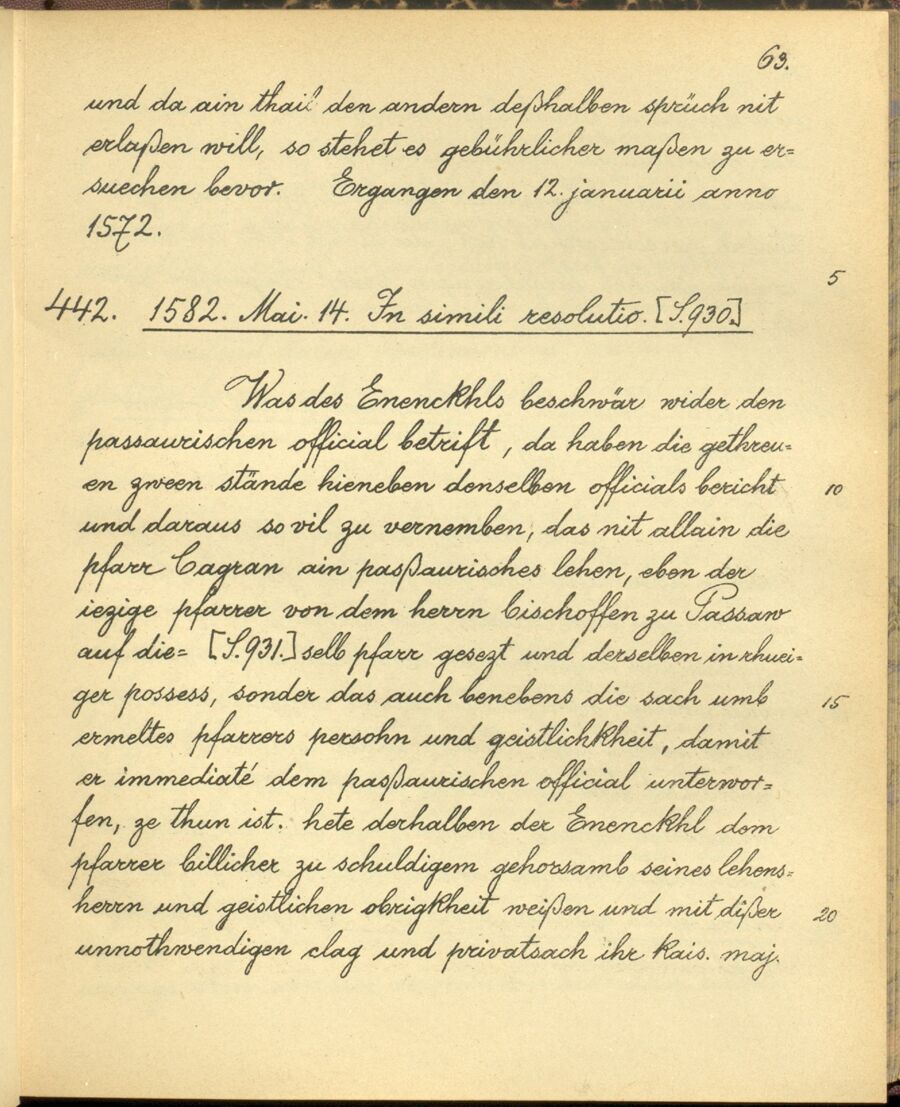 63.
und da ain thail den andern deßhalben sprüch nit
erlaßen will, so stehet es gebührlicher maßen zu er=
suechen bevor. Ergangen den 12. januarii anno
1572.
5
442. 1582. Mai. 14. In simili resolutio. [S.930.]
Was des Enenckhls beschwär wider den
passaurischen official betrift, da haben die gethreu=
en zween stände hieneben denselben officials bericht 10
und daraus so vil zu vernemben, das nit allain die
pfarr Cagran ain paßaurisches lehen, eben der
iezige pfarrer von dem herrn bischoffen zu Passaw
auf die= [S.931.] selb pfarr gesezt und derselben in rhuei=
ger possess, sonder das auch benebens die sach umb 15
ermeltes pfarrers persohn und geistlichkheit, damit
er immediaté dem paßaurischen official unterwor=
fen, ze thun ist. hete derhalben der Enenckhl dem
pfarrer billicher zu schuldigem gehorsamb seines lehens=
herrn und geistlichen obrigkheit weißen und mit dißer 20
unnothwendigen clag und privatsach ihr kais. maj.